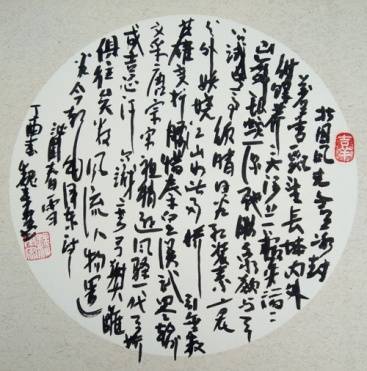 北国风光千里冰封
万里雪飘望长城内外
惟余莽莽大河上下顿失滔滔
山舞银蛇原驰蜡象欲与天
公试比高须晴日看红装素裹
分外妖娆江山如此多娇引无数
英雄竞折腰惜秦皇汉武略输
文采唐宗宋祖稍逊风骚一代天骄
成吉思汗只识弯弓射大雕
俱往矣数风流人物还
看今朝毛泽东词
沁园春雪
丁酉春魏